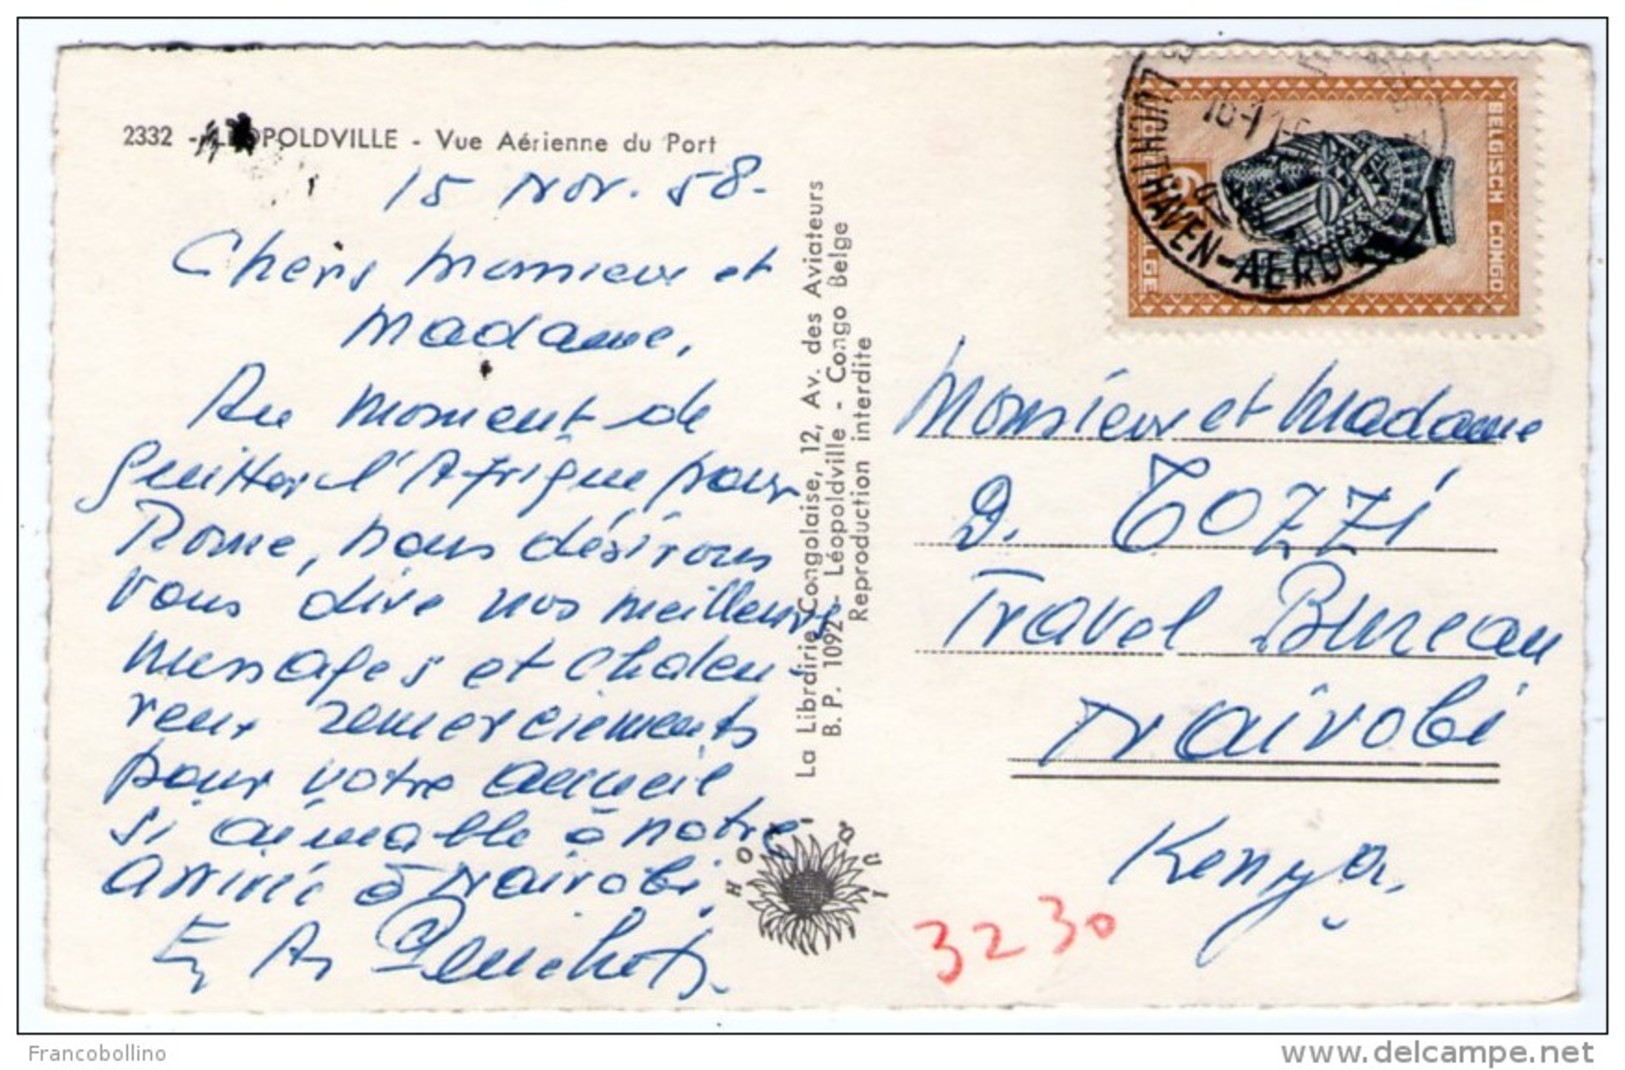 2332 - LÉOPOLDVILLE - Vue Aérienne du Port
15 Nov. 58-
Chers Monsieur et
Madame,
Au moment de
quitter l'Afrique pour
Rome, nous désirons
vous dire nos meilleurs
messages et chaleu
reux remerciements
pour votre accueil
si aimable à notre
arrivée à Nairobi.
E. A.
La Librairie Congolaise, 12, Av. des Aviateurs
B. P. 1092 - Léopoldville - Congo Belge
Reproduction interdite
HO QUI
BELGISCH CONGO
BELGE
6
LUCHTHAVEN-AERO
Monsieur et Madame
D. TOZZI
Travel Bureau
Nairobi
Kenya.
3230
Francobollino
www.delcampe.net